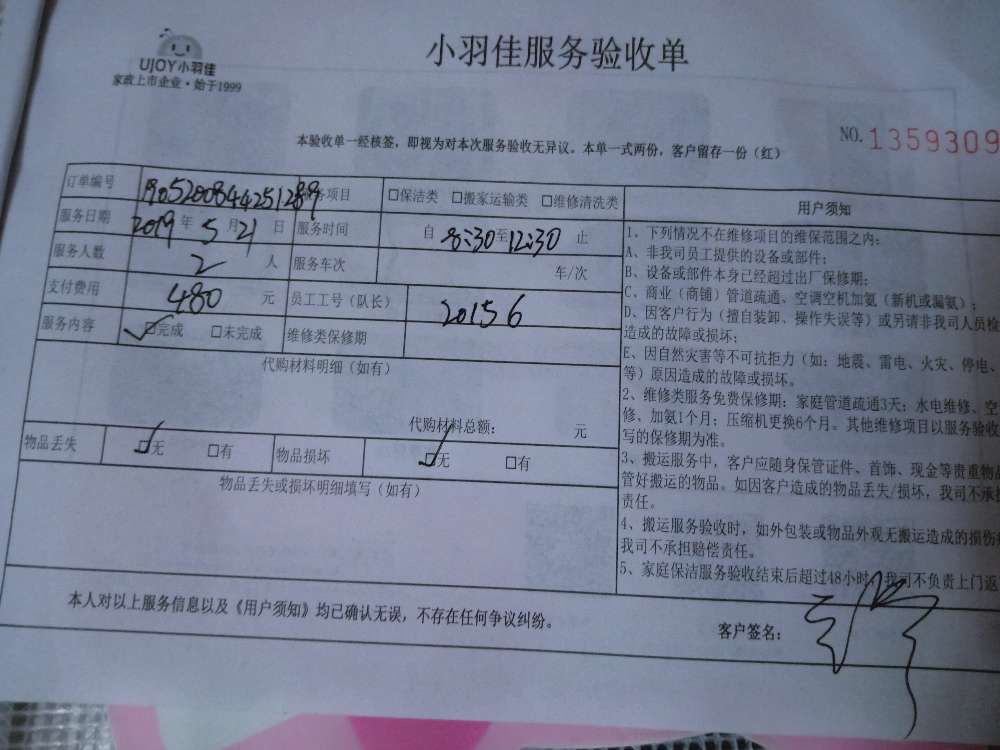 UJOY小羽佳
家政上市企业·始于1999
小羽佳服务验收单
本验收单一经核签，即视为对本次服务验收无异议。本单一式两份，客户留存一份（红）
NO.1359309
订单编号 1905200844251289 服务项目 □保洁类 □搬家运输类 □维修清洗类
服务日期 2019年5月21日 服务时间 自8:30至12:30止
服务人数 2人 服务车次 车/次
支付费用 480元 员工工号（队长） 20156
服务内容 □完成 □未完成 维修类保修期
代购材料明细（如有）
代购材料总额： 元
物品丢失 □无 □有 物品损坏 □无 □有
物品丢失或损坏明细填写（如有）
用户须知
1、下列情况不在维修项目的维保范围之内：
A、非我司员工提供的设备或部件；
B、设备或部件本身已经超过出厂保修期；
C、商业（商铺）管道疏通、空调空机加氨（新机或漏氨）；
D、因客户行为（擅自装卸、操作失误等）或另请非我司人员检
造成的故障或损坏；
E、因自然灾害等不可抗拒力（如：地震、雷电、火灾、停电、
等）原因造成的故障或损坏。
2、维修类服务免费保修期：家庭管道疏通3天；水电维修、空
修、加氨1个月；压缩机更换6个月。其他维修项目以服务验收
写的保修期为准。
3、搬运服务中，客户应随身保管证件、首饰、现金等贵重物品
管好搬运的物品。如因客户造成的物品丢失/损坏，我司不承担
责任。
4、搬运服务验收时，如外包装或物品外观无搬运造成的损伤
我司不承担赔偿责任。
5、家庭保洁服务验收结束后超过48小时，我司不负责上门返
本人对以上服务信息以及《用户须知》均已确认无误，不存在任何争议纠纷。
客户签名：